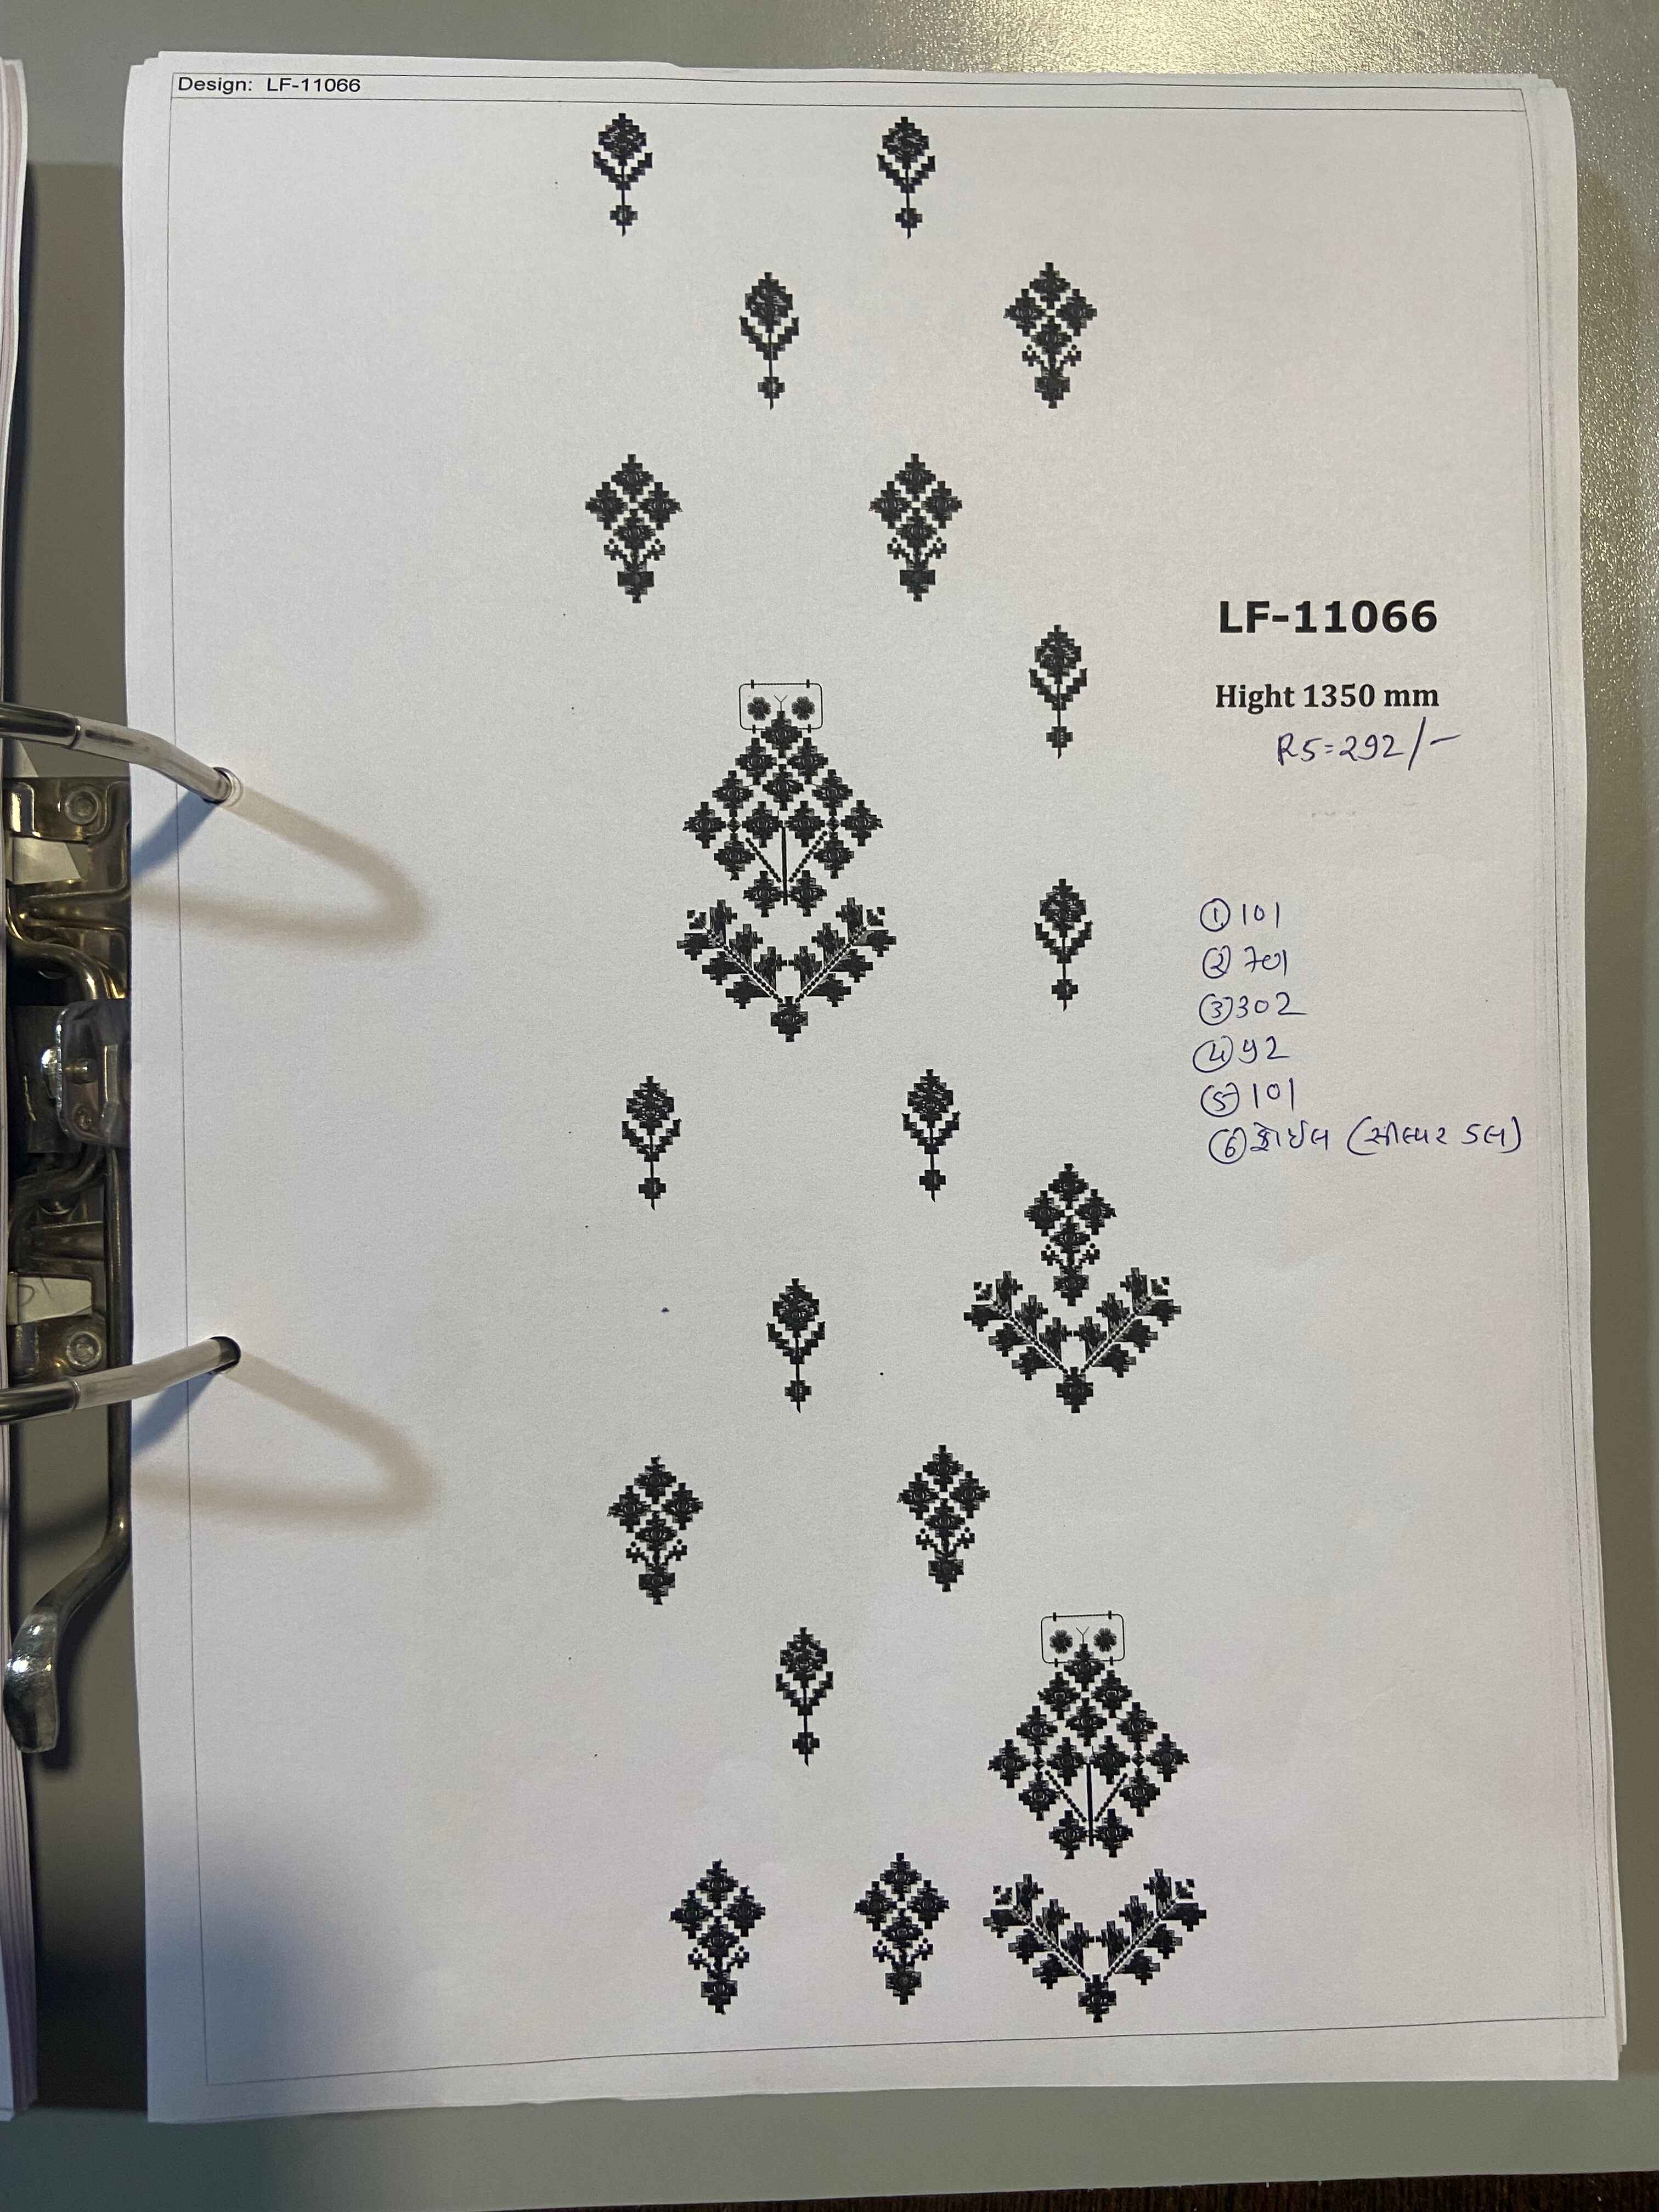 Design: LF-11066
LF-11066
Hight 1350 mm
RS=292/-
① 101
③ 302
④ 92
⑤ 101
⑥ ફોઈલ (સીલ્વર કલ)